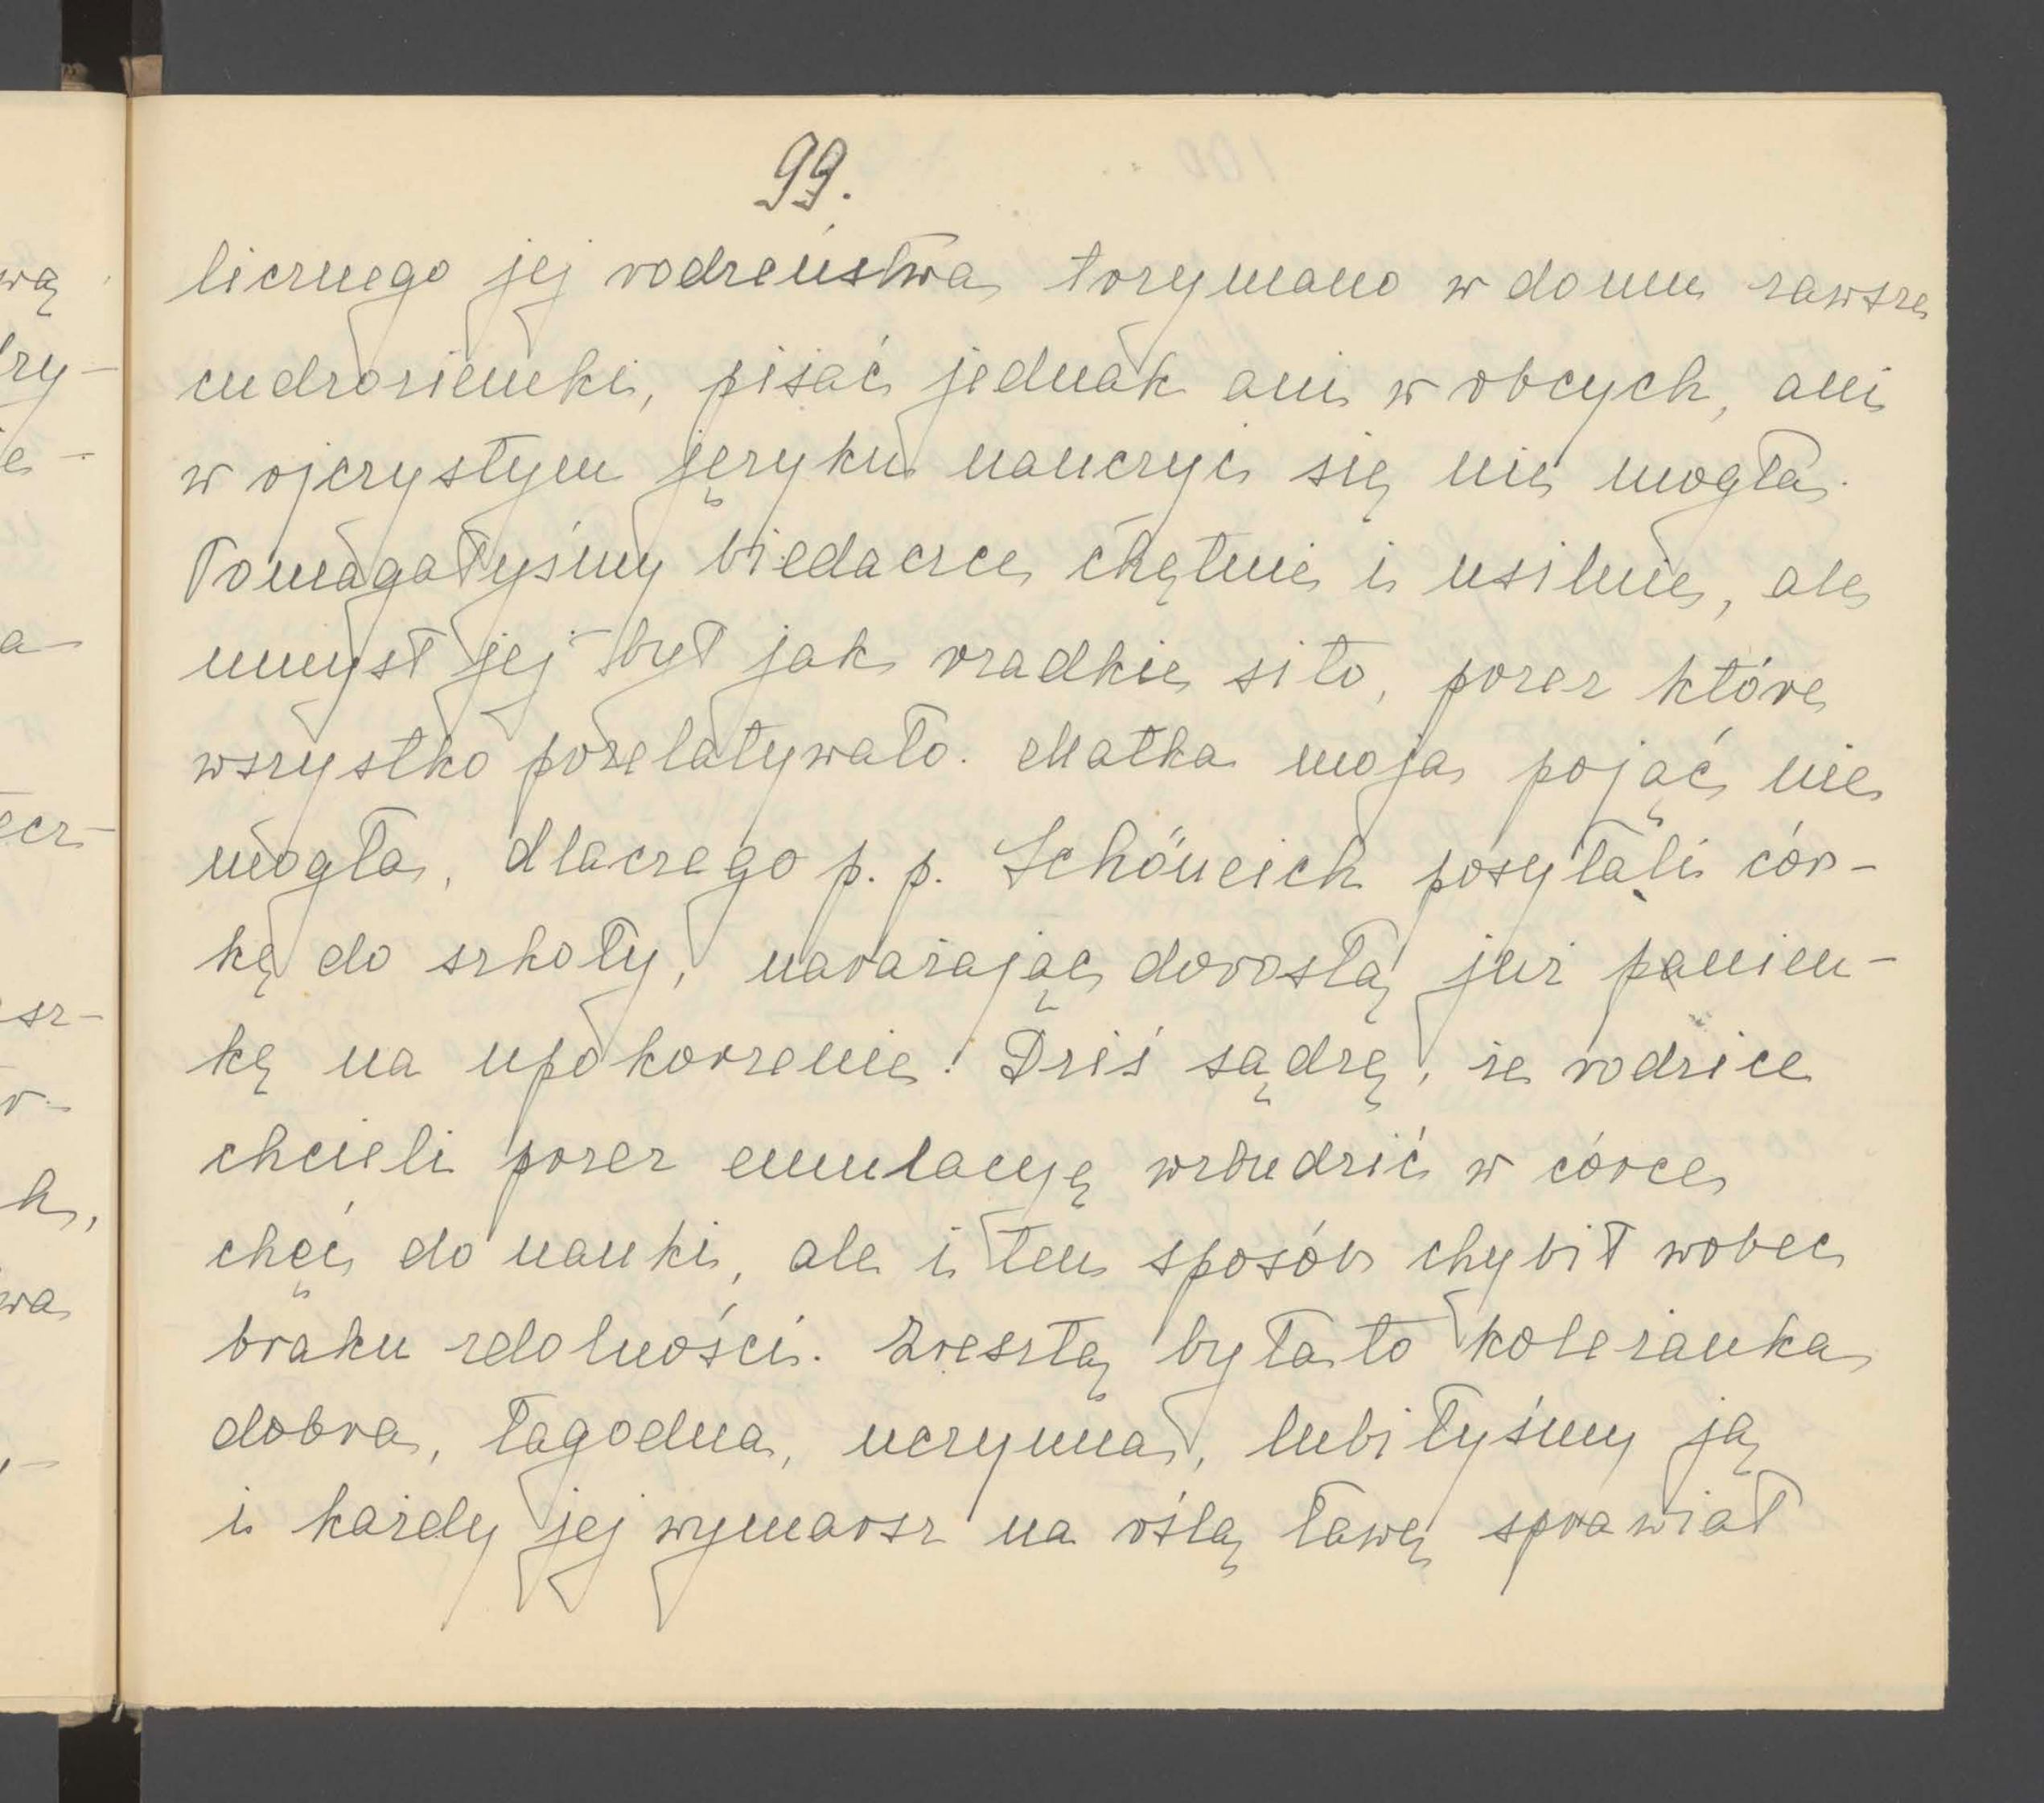 wą
ry-
e-
a-
ecz-
sz-
r-
h,
wa
99.
licznego jej rodzeństwa trzymano w domu zawsze
cudzoziemki, pisać jednak ani w obcych, ani
w ojczystym języku nauczyć się nie mogła.
Pomagałyśmy biedaczce chętnie i usilnie, ale
umysł jej był jak rzadkie sito, przez które
wszystko przelatywało. Matka moja pojąć nie
mogła, dlaczego p. p. Schöneich posyłali cór-
kę do szkoły, narażając dorosłą już panien-
kę na upokorzenie! Dziś sądzę, że rodzice
chcieli przez emulacyę wzbudzić w córce
chęć do nauki, ale i ten sposób chybił wobec
braku zdolności. Zresztą była to koleżanka
dobra, łagodna, uczynna, lubiłyśmy ją
i każdy jej wymarsz na oślą ławę sprawiał